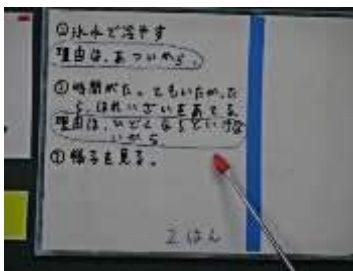 ①氷水で冷やす
理由は、あついから。
②時間がたってもいたかった
ら、ほれいざいをあてる。
理由は、ひどくならないように
いから。
③様子を見る。
2はん